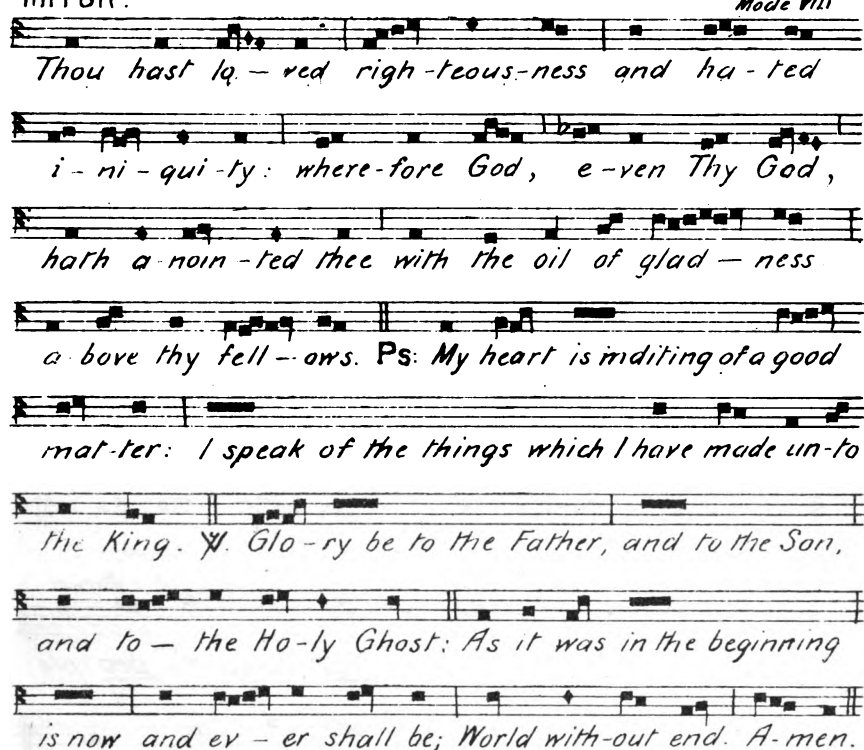 Mode VIII
Thou hast lo-ved righ-teous-ness and ha-ted
i-ni-qui-ty: where-fore God, e-ven Thy God,
hath a-noin-ted thee with the oil of glad-ness
a-bove thy fell-ows. Ps: My heart is inditing of a good
mat-ter: I speak of the things which I have made un-to
the King. ℣. Glo-ry be to the Father, and to the Son,
and to- the Ho-ly Ghost: As it was in the beginning
is now and ev-er shall be; World with-out end. A-men.